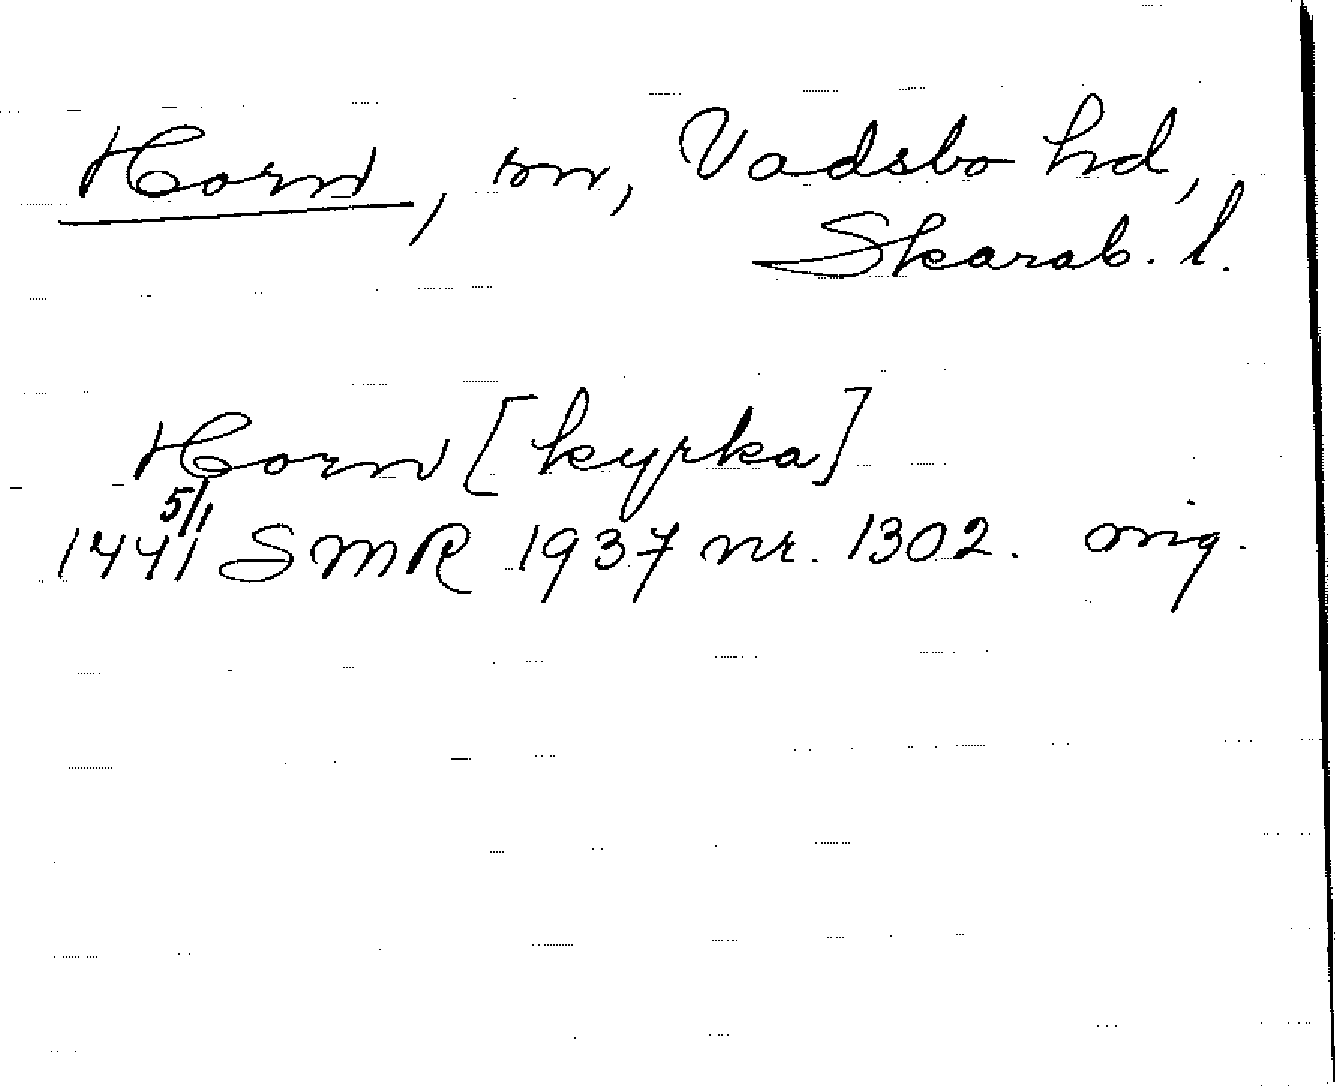 Horn, sn, Vadsbo hd,
Skarab. l.
Horn [kyrka]
1441 5/1 SMR 1937 nr. 1302. orig.